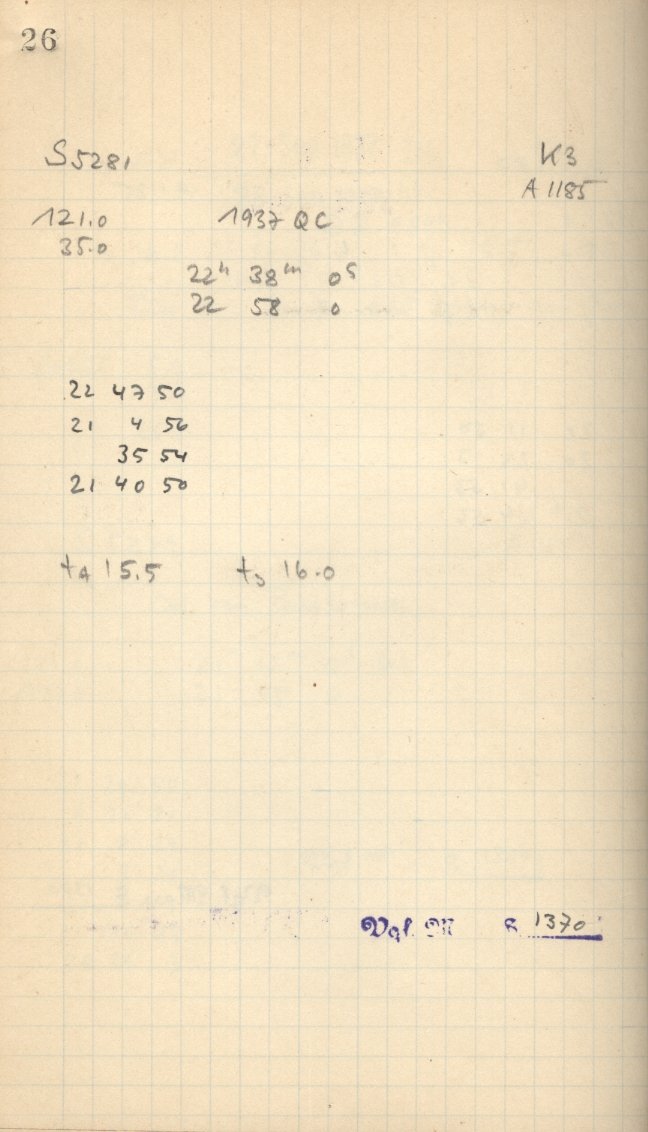 26
S5281 K3
A 1185
121.0 1937 QC
35.0
22h 38m 0s
22 58 0
22 47 50
21 4 56
35 54
21 40 50
tA 15.5 t 16.0
Vgl. M S. 1370